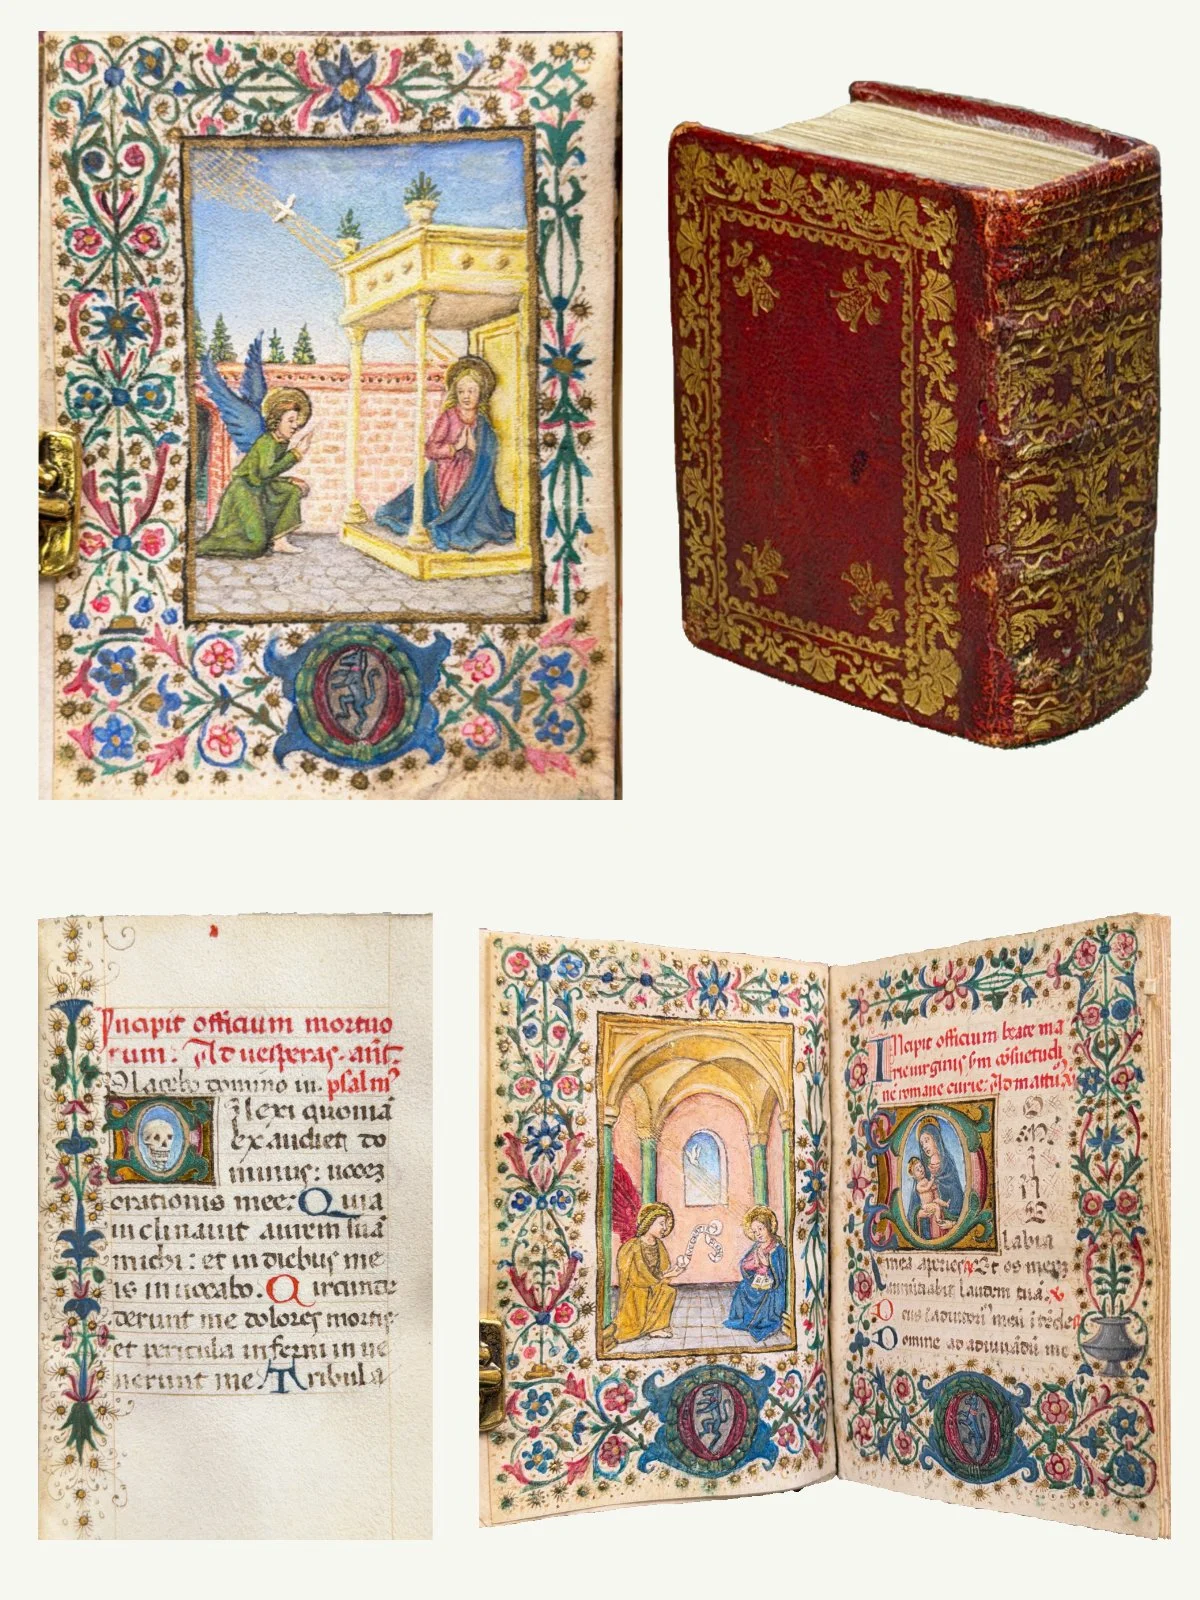 Incipit officium mortuo
rum. Ad vesperas. ant.
Placebo domino in. psalm̃
Ilexi quoniã
exaudiet do
minus: vocez
orationis mee: Quia
inclinavit aurem suã
michi: et in diebus me
is invocabo. Circunde
derunt me dolores mortis
et pericula inferni in ve
nerunt me. Tribula
Incipit officium beate ma
rie virginis ßm cõsuetudi
nẽ romane curie. Ad mattu
D
O
M
I
N
E
labia
mea aperies. Et os meuz
annũtiabit laudem tuã.
Deus ĩ adiutoriũ meũ ĩtẽde
Domine ad adiuvãdũ me